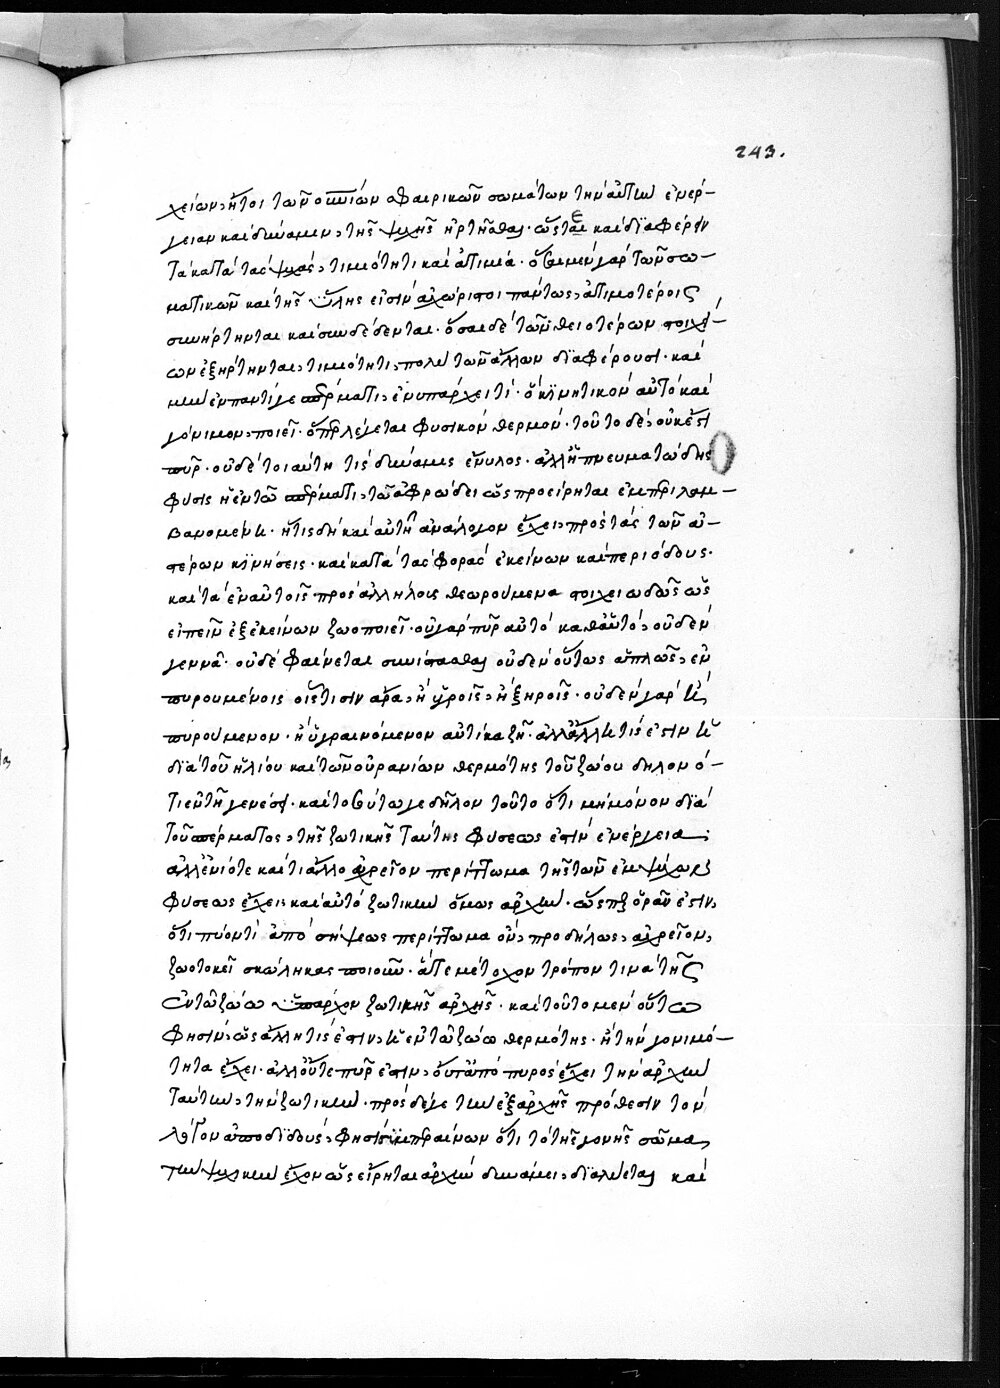 243.
χείων, ἤτοι τῶν οὐνίων σφαιρικῶν σωμάτων τὴν αὐτὴν ἐνέρ-
γειαν καὶ δύναμιν, τῆς ψυχῆς ἠρτῆσθαι. ὥστε καὶ διαφέρειν
τὰ κατὰ τὰς ψυχὰς, τιμιότητι καὶ ἀτιμία. ὅσαι μὲν γὰρ τῶν σω-
ματικῶν καὶ τῆς ὕλης εἰσὶν ἀχώριστοι πάντως, ἀτιμοτέροις
συνήρτηνται καὶ συνδέδενται. ὅσαι δὲ τῶν θειοτέρων στοιχεί-
ων ἐξήρτηνται, τιμιότητι, πολὺ τῶν ἄλλων διαφέρουσι. καὶ
μὴν ἐν παντί γε σπέρματι, ἐνυπάρχει τί. ὃ κινητικὸν αὐτὸ καὶ
γόνιμον, ποιεῖ. ὅπερ λέγεται φυσικὸν θερμόν. τοῦτο δὲ, οὐκ ἔστι
πῦρ. οὐδὲ τοιαύτη τὶς δύναμις ἔνυλος. ἀλλ' ἡ πνευματώδης
φύσις ἡ ἐν τῷ σπέρματι, τῷ ἀφρώδει ὡς προείρηται ἐμπεριλαμ-
βανομένη. ἥτις δὴ καὶ αὐτὴ ἀνάλογον ἔχει, πρὸς τὰς τῶν ἀ-
στέρων κινήσεις. καὶ κατὰ τὰς φορὰς ἐκείνων καὶ περιόδους.
καὶ τὰ ἐν αὐτοῖς πρὸς ἀλλήλους θεωρούμενα στοιχειωδῶς ὡς
εἰπεῖν ἐξ ἐκείνων ζωοποιεῖ. οὐ γὰρ πῦρ αὐτὸ καθ' αὑτὸ, οὐδὲν
γεννᾶ. οὐδὲ φαίνεται συνίστασθαι οὐδὲν οὕτως ἁπλῶς, ἐν
πυρουμένοις οἷς τισιν ἄρα, ἢ ὑγροῖς, ἢ ξηροῖς. οὐδὲν γὰρ ἢ
πυρούμενον. ἢ ὑγραινόμενον αὐτίκα ζῆ. ἀλλ' ἄλλη τίς ἐστιν ἡ
διὰ τοῦ ἡλίου καὶ τῶν οὐρανίων θερμότης τοῦ ζώου δηλονό-
τι ἐν τῇ γενέσει. καὶ τούτω γε δῆλον τοῦτο ὅτι μὴ μόνον διὰ
τοῦ σπέρματος, τῆς ζωτικῆς ταύτης φύσεως ἐστὶν ἐνέργεια,
ἀλλ' ἐνίοτε καὶ τι ἄλλο ἀχρεῖον περίττωμα τῆς τῶν ἐμψύχων
φύσεως ἔχει, καὶ αὐτὸ ζωτικὴν ὅμως ἀρχήν. ὥσπερ ὁρᾶν ἐστιν,
ὅτι πύον τὶ ἀπὸ σήψεως περίττωμα ὂν, προδήλως, ἀχρεῖον,
ζωοτοκεῖ σκώληκας ποιοῦν. ἅτε μέτοχον τρόπον τινὰ τῆς
ἐν τῷ ζώω ὑπάρχον ζωτικῆς ἀρχῆς. καὶ τοῦτο μὲν οὕτω
φησὶν, ὡς ἄλλη τίς ἐστιν, ἡ ἐν τῷ ζώω θερμότης. ἣ τὴν γονιμό-
τητα ἔχει. ἀλλ' οὔτε πῦρ ἐστιν, οὔτ' ἀπὸ πυρὸς ἔχει τὴν ἀρχὴν
ταύτην, τὴν ζωτικήν. πρὸς δέ γε τὴν ἐξ ἀρχῆς πρόθεσιν τὸν
λόγον ἀποδιδοὺς, φησὶ συμπεραίνων ὅτι τὸ τῆς γονῆς σῶμα,
τὴν ψυχικὴν ἔχον ὡς εἴρηται ἀρχὴν δυνάμει, διαλύεται καὶ